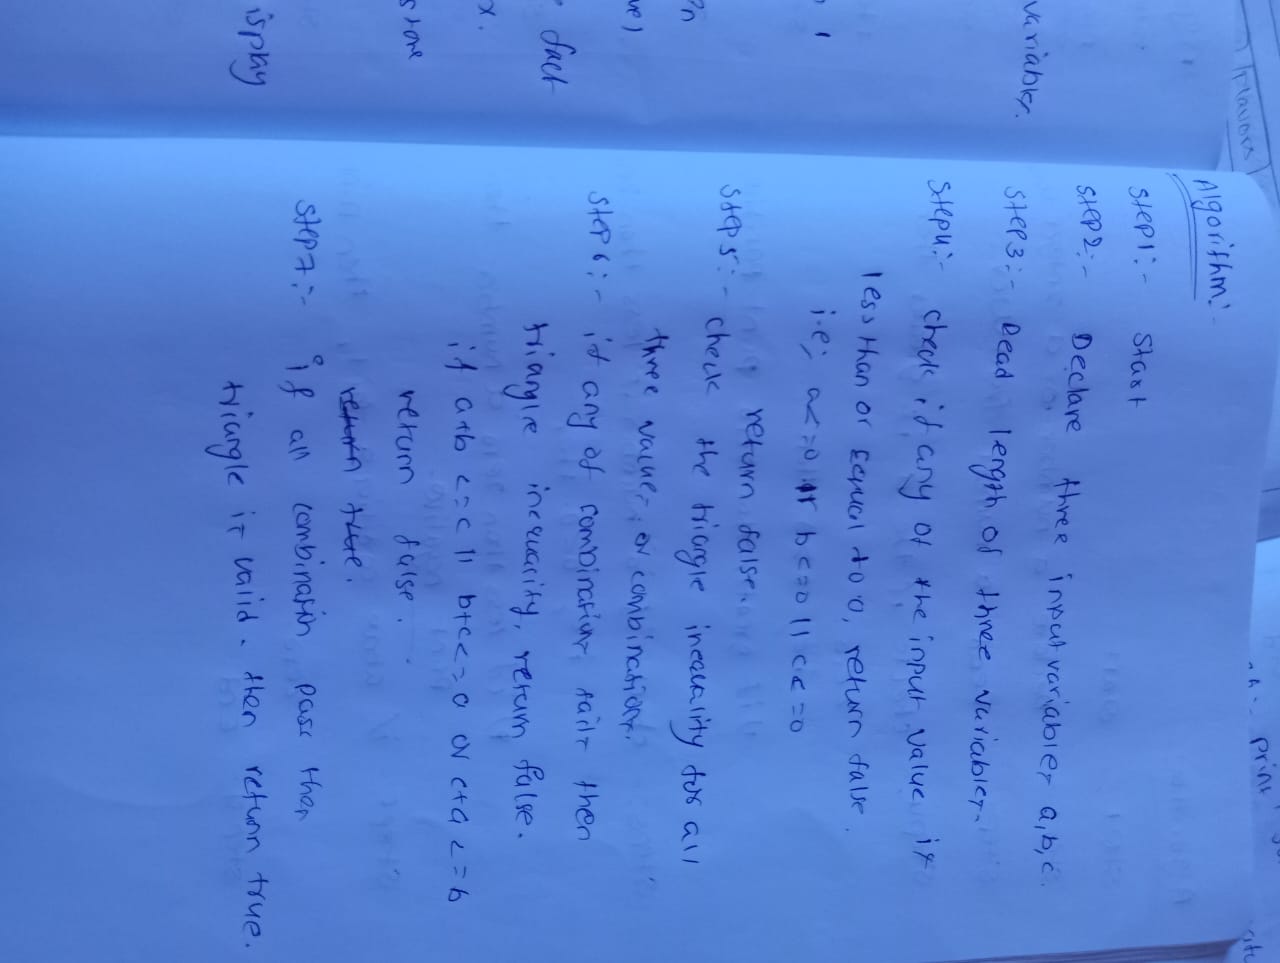 variables.
fact
store
isplay
Algorithm:-
Step1:- Start
Step2:- Declare three input variables a,b,c.
Step3:- Read length of three variables.
Step4:- check if any of the input value is
less than or equal to 0, return false.
i.e; a<=0 || b<=0 || c<=0
return false.
Step5:- check the triangle inequality for all
three values or combinations.
Step6:- if any of combinations fails then
triangle inequality, return false.
if a+b <=c || b+c<=0 or c+a <=b
return false.
return true.
Step7:- if all combination pass then
triangle is valid. then return true.